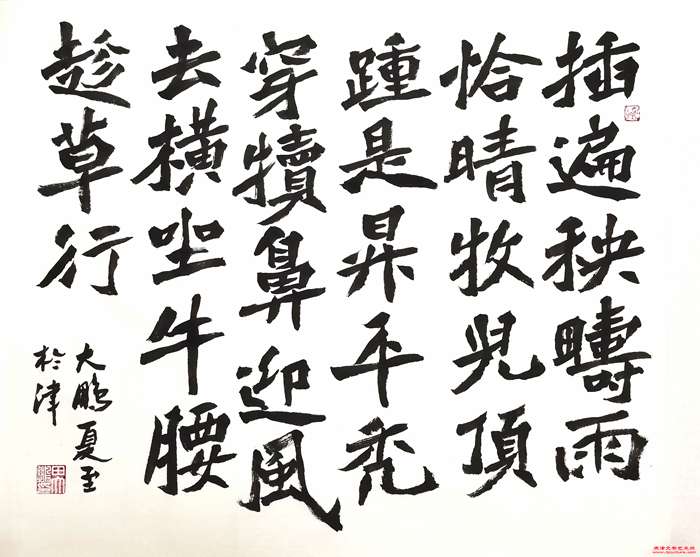 插遍秧疇雨
恰晴牧兒頂
踵是昇平禿
穿犢鼻迎風
去橫坐牛腰
趁草行
大鵬夏至
於津